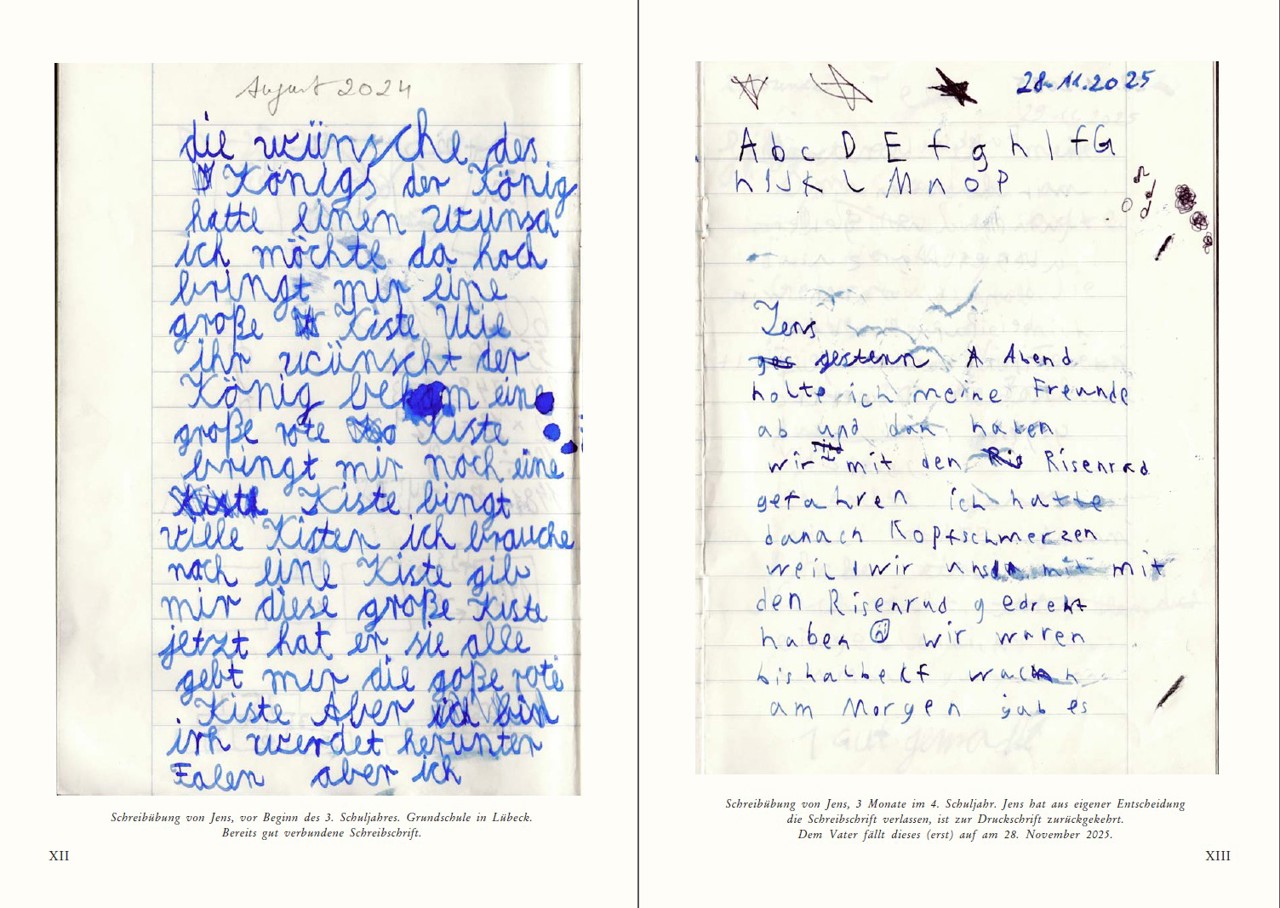 August 2024
die wünsche des
Königs der König
hatte einen wunsch
ich möchte da hoch
bringt mir eine
große Kiste Wie
ihr wünscht der
König bekam eine
große rote Kiste
bringt mir noch eine
Kiste bingt
ville Kisten ich brauche
noch eine Kiste gib
mir diese große Kiste
jetzt hat er sie alle
gebt mir die goße rote
Kiste Aber ich bin
ich werdet herunter
Falen aber ich
Schreibübung von Jens, vor Beginn des 3. Schuljahres. Grundschule in Lübeck.
Bereits gut verbundene Schreibschrift.
XII
28.11.2025
A b c D E f g h I f G
h I J K L M n o P
Jens
gestern A Abend
holte ich meine Freunde
ab und dan haben
wir mit den Risenrad
gefahren ich hatte
danach Kopfschmerzen
weil wir uns mit
den Risenrad gedreht
haben wir waren
bis halbelf wach
am Morgen gab es
Schreibübung von Jens, 3 Monate im 4. Schuljahr. Jens hat aus eigener Entscheidung
die Schreibschrift verlassen, ist zur Druckschrift zurückgekehrt.
Dem Vater fällt dieses (erst) auf am 28. November 2025.
XIII